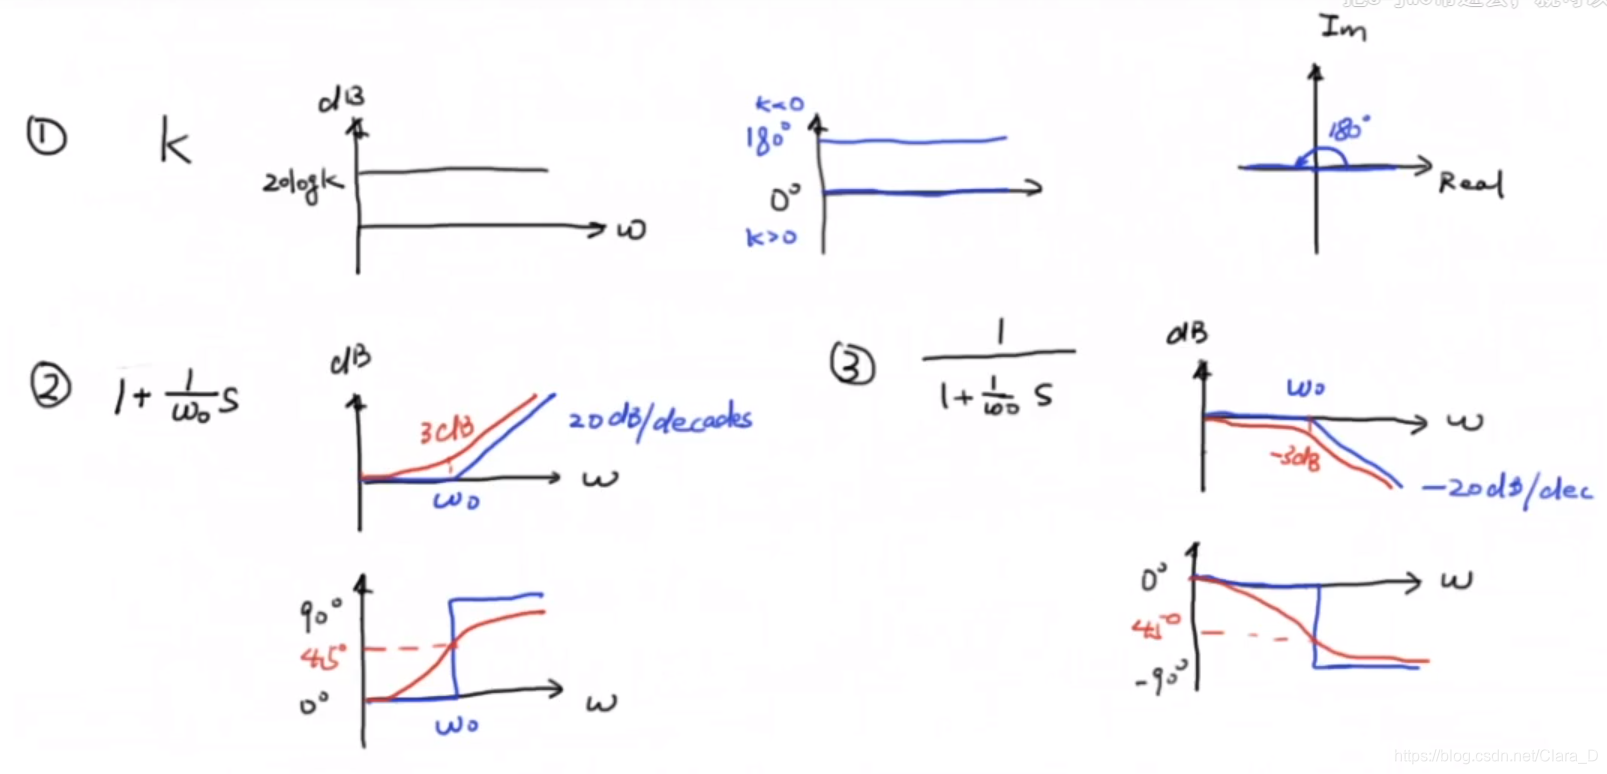 Im
① K
dB
20logK
ω
K<0
180°
0°
K>0
180°
Real
② 1+ 1/ω₀ S
dB
3dB
20dB/decades
ω
ω₀
90°
45°
0°
ω
ω₀
③ 1/(1+ 1/ω₀ S)
dB
ω₀
ω
-3dB
-20dB/dec
0°
ω
45°
-90°
https://blog.csdn.net/Clara_D